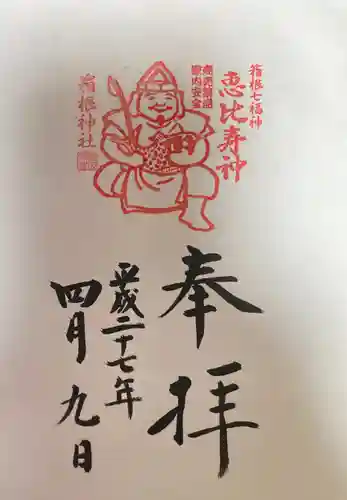 箱根七福神
恵比寿神
商売繁盛
家内安全
箱根神社
奉拝
平成二十七年
四月九日